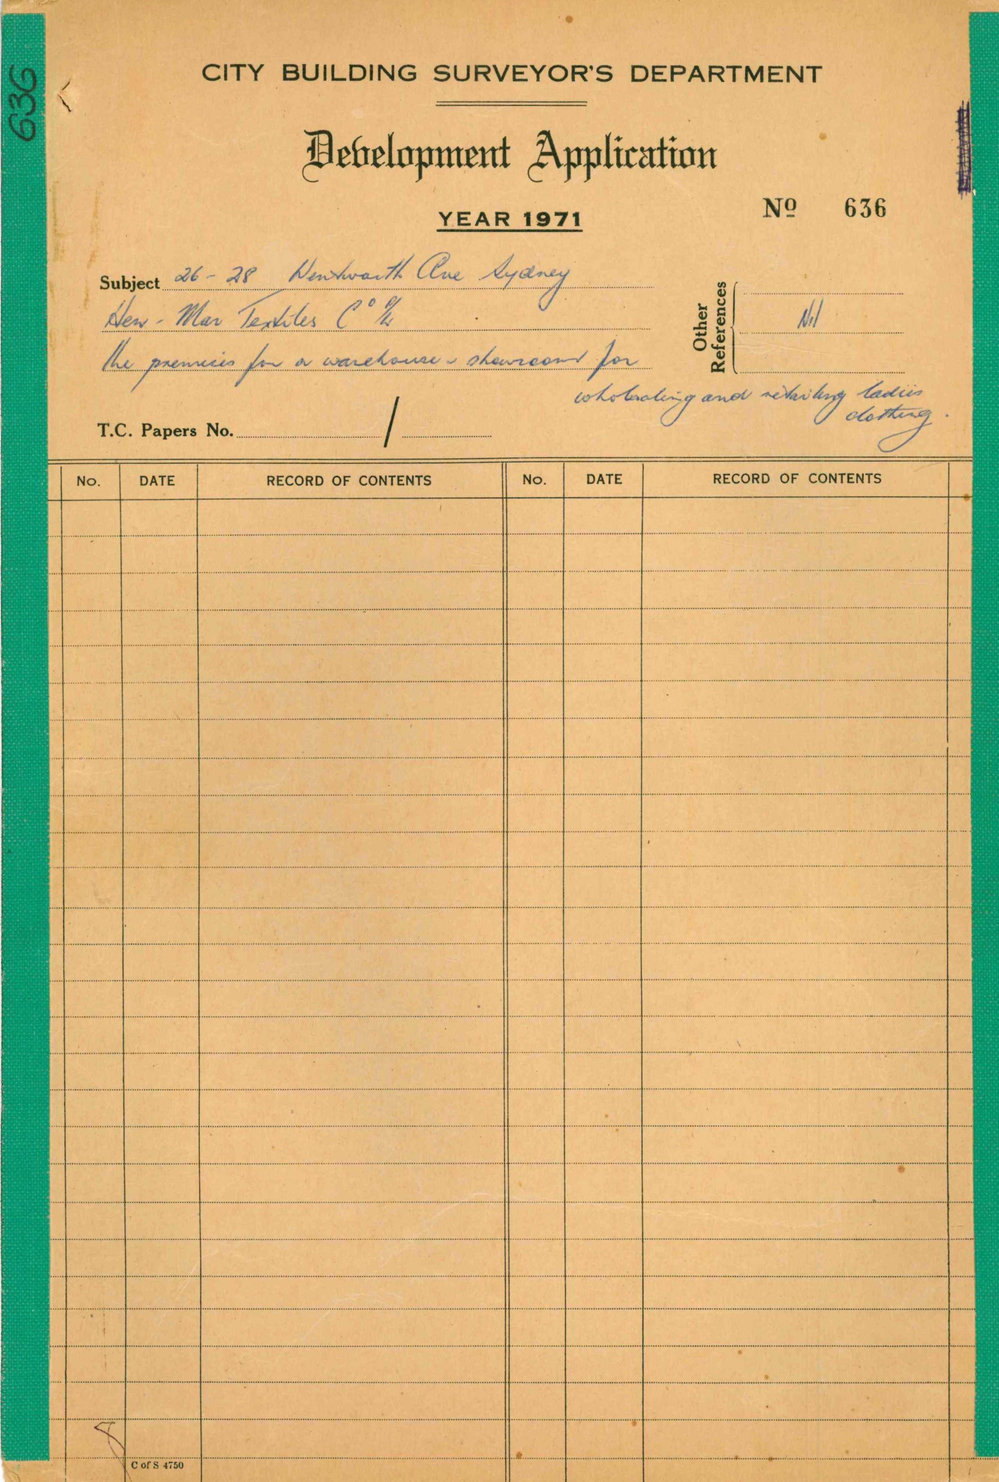 636
CITY BUILDING SURVEYOR'S DEPARTMENT
Development Application
YEAR 1971
Nº 636
Subject 26 - 28 Wentworth Ave Sydney
Hen - Mar Textiles Co
the premises for a warehouse - showroom for
wholesaling and retailing ladies
clothing.
Other References
Nil
T.C. Papers No. /
No. DATE RECORD OF CONTENTS No. DATE RECORD OF CONTENTS
C of S 4750